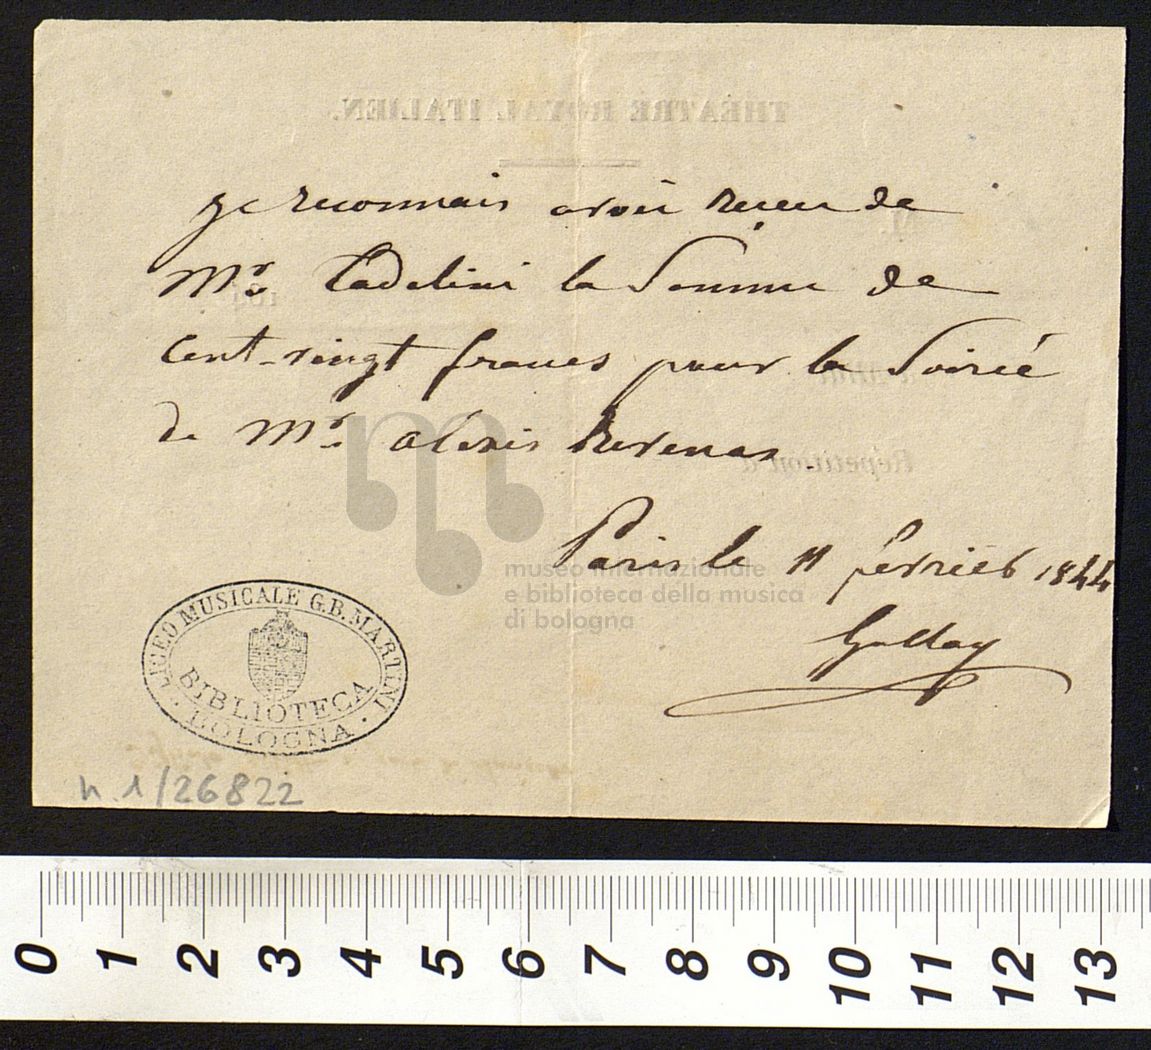 THEATRE ROYAL ITALIEN.
Je reconnais avoir recu de
Mr. Tadolini la Somme de
Cent-vingt francs pour la Soirée
de Mr. alexis
Répétition à
Paris le 11 fevrier 1844
museo internazionale
e biblioteca della musica
di bologna
Gallay
LICEO MUSICALE G.B. MARTINI
BIBLIOTECA
BOLOGNA
n. 1/26822
0 1 2 3 4 5 6 7 8 9 10 11 12 13